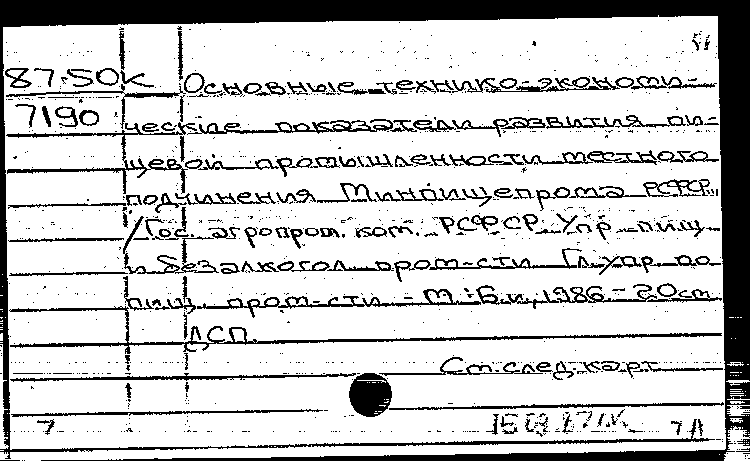 51
87-50к Основные технико-экономи-
7190 ческие показатели развития пи-
щевой промышленности местного
подчинения Минпищепрома РСФСР.
/Гос. агропром. ком. РСФСР. Упр. пищ.
и безалкогол. пром-сти. Гл. упр. по
пищ. пром-сти. - М.: Б.и., 1986. - 20см.
ДСП.
См. след. карт.
7 7Л